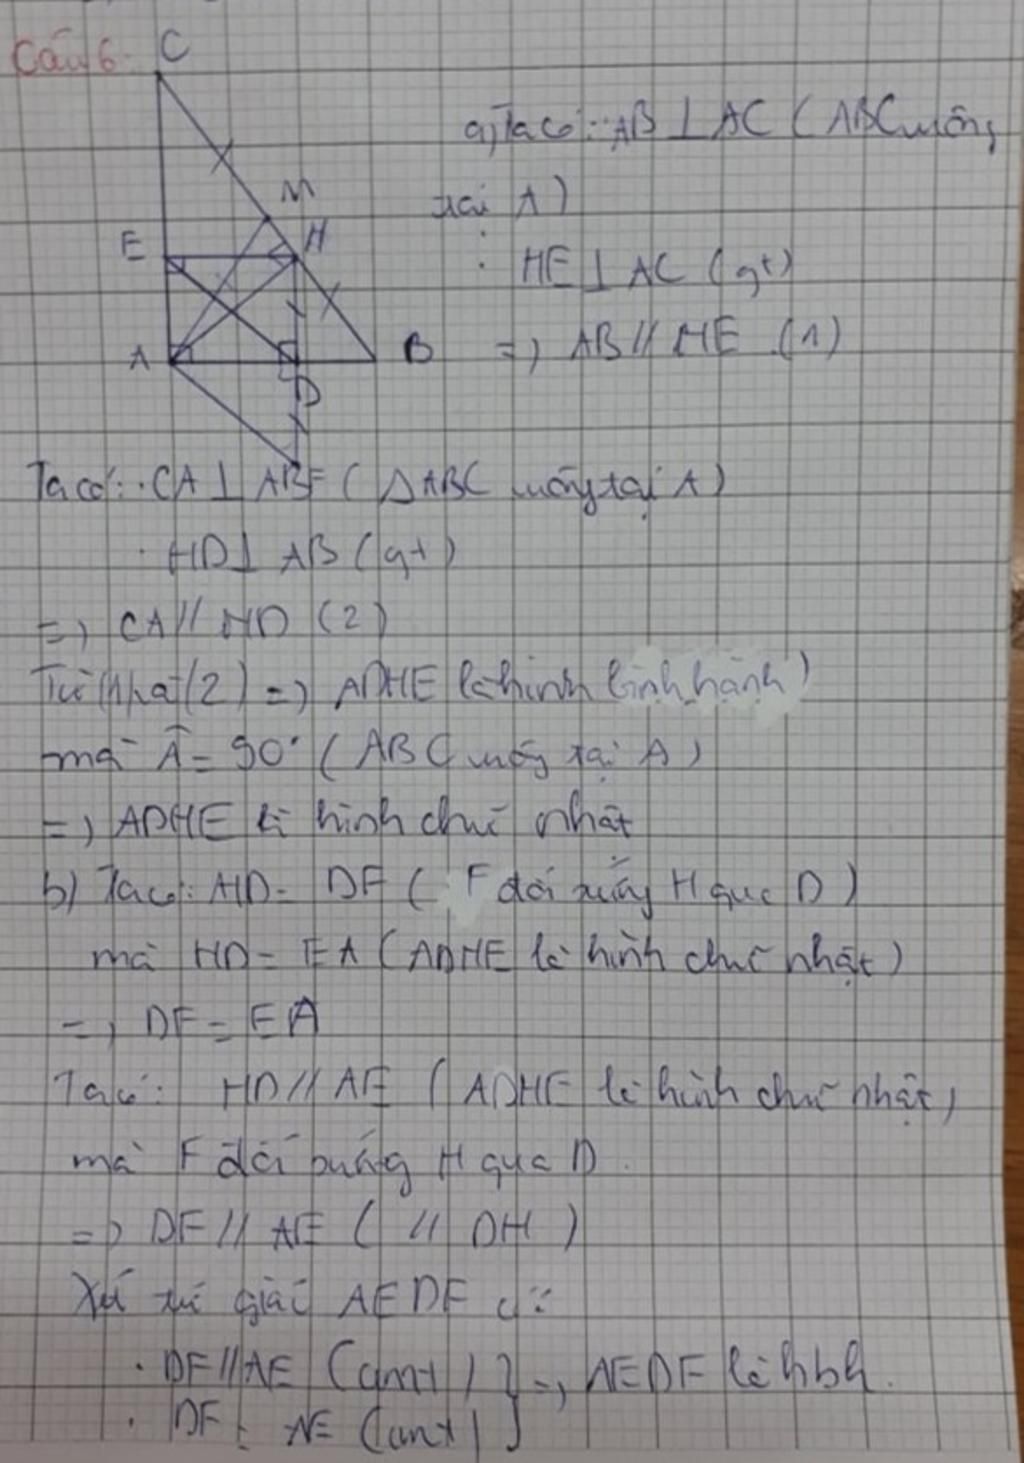 Câu 6:
C
M
E
H
A
B
D
F
a) Ta có: AB ⊥ AC (ABC vuông
tại A)
HE ⊥ AC (gt)
=> AB // HE (1)
Ta có: CA ⊥ AB (△ABC vuông tại A)
HD ⊥ AB (gt)
=> CA // HD (2)
Từ (1) và (2) => ADHE là hình bình hành
mà Â = 90° (ABC vuông tại A)
=> ADHE là hình chữ nhật
b) Ta có: HD = DF (F đối xứng H qua D)
mà HD = EA (ADHE là hình chữ nhật)
=> DF = EA
Ta có: HD // AE (ADHE là hình chữ nhật)
mà F đối xứng H qua D.
=> DF // AE ( // DH )
Xét tứ giác AEDF có:
· DF // AE (cmt) } => AEDF là hbh.
· DF = AE (cmt)